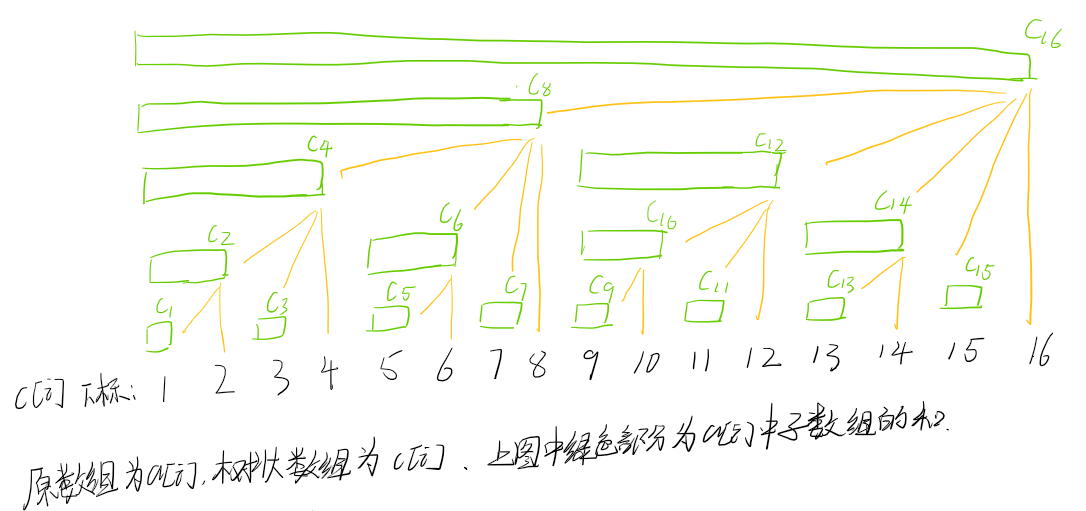 C16
C8
C4 C12
C2 C6 C16 C14
C1 C3 C5 C7 C9 C11 C13 C15
C[i] 下标: 1 2 3 4 5 6 7 8 9 10 11 12 13 14 15 16
原数组为a[i],树状数组为c[i]、上图中绿色部分为a[i]中子数组的和.